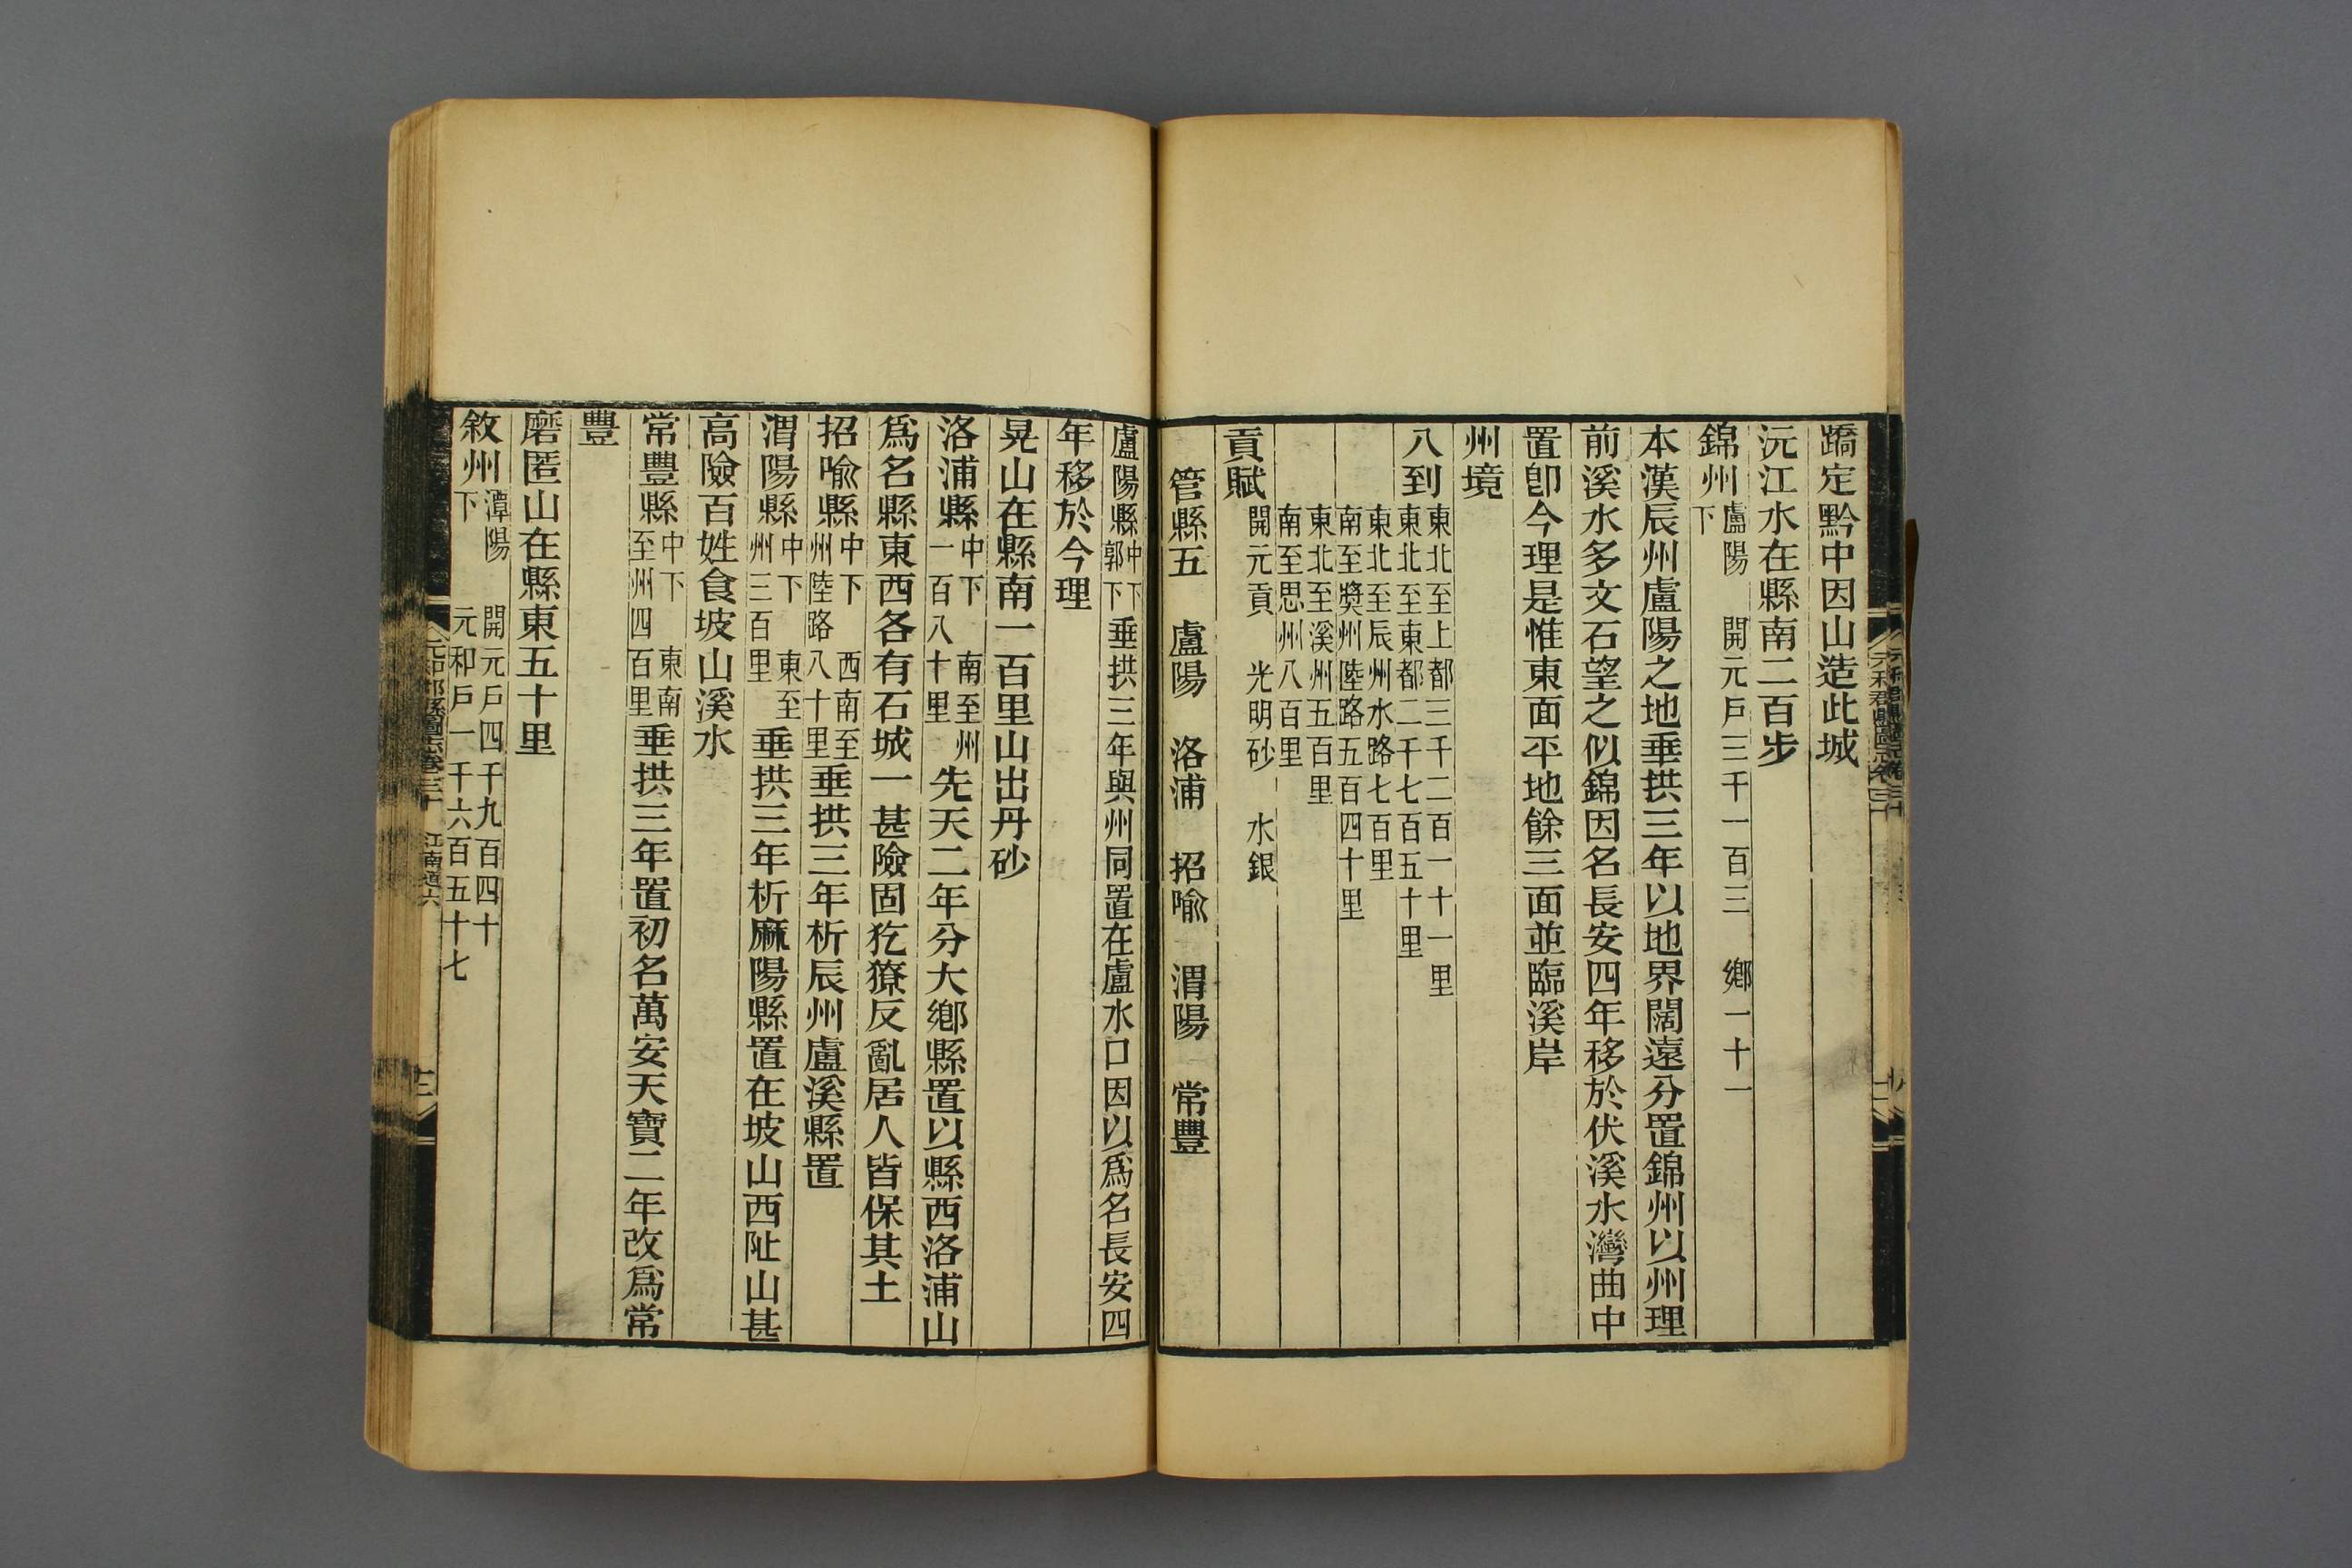 蹻定黔中因山造此城
沅江水在縣南二百步
錦州盧陽下 開元戶三千一百三 鄉一十一
本漢辰州盧陽之地垂拱三年以地界闊遠分置錦州以州理
前溪水多文石望之似錦因名長安四年移於伏溪水灣曲中
置卽今理是惟東面平地餘三面並臨溪岸
州境
八到東北至上都三千二百一十一里
東北至東都二千七百五十里
東北至辰州水路七百里
南至奬州陸路五百四十里
東北至溪州五百里
南至思州八百里
貢賦開元貢 光明砂 水銀
管縣五 盧陽 洛浦 招喩 渭陽 常豐
盧陽縣中下郭下垂拱三年與州同置在盧水口因以爲名長安四
年移於今理
晃山在縣南一百里山出丹砂
洛浦縣中下 南至州一百八十里先天二年分大鄉縣置以縣西洛浦山
爲名縣東西各有石城一甚險固犵獠反亂居人皆保其土
招喩縣中下 西南至州陸路八十里垂拱三年析辰州盧溪縣置
渭陽縣中下 東至州三百里垂拱三年析麻陽縣置在坡山西阯山甚
高險百姓食坡山溪水
常豐縣中下 東南至州四百里垂拱三年置初名萬安天寶二年改爲常
豐
磨匿山在縣東五十里
敘州潭陽下 開元戶四千九百四十
元和戶一千六百五十七
元和郡縣圖志卷三十 江南道六